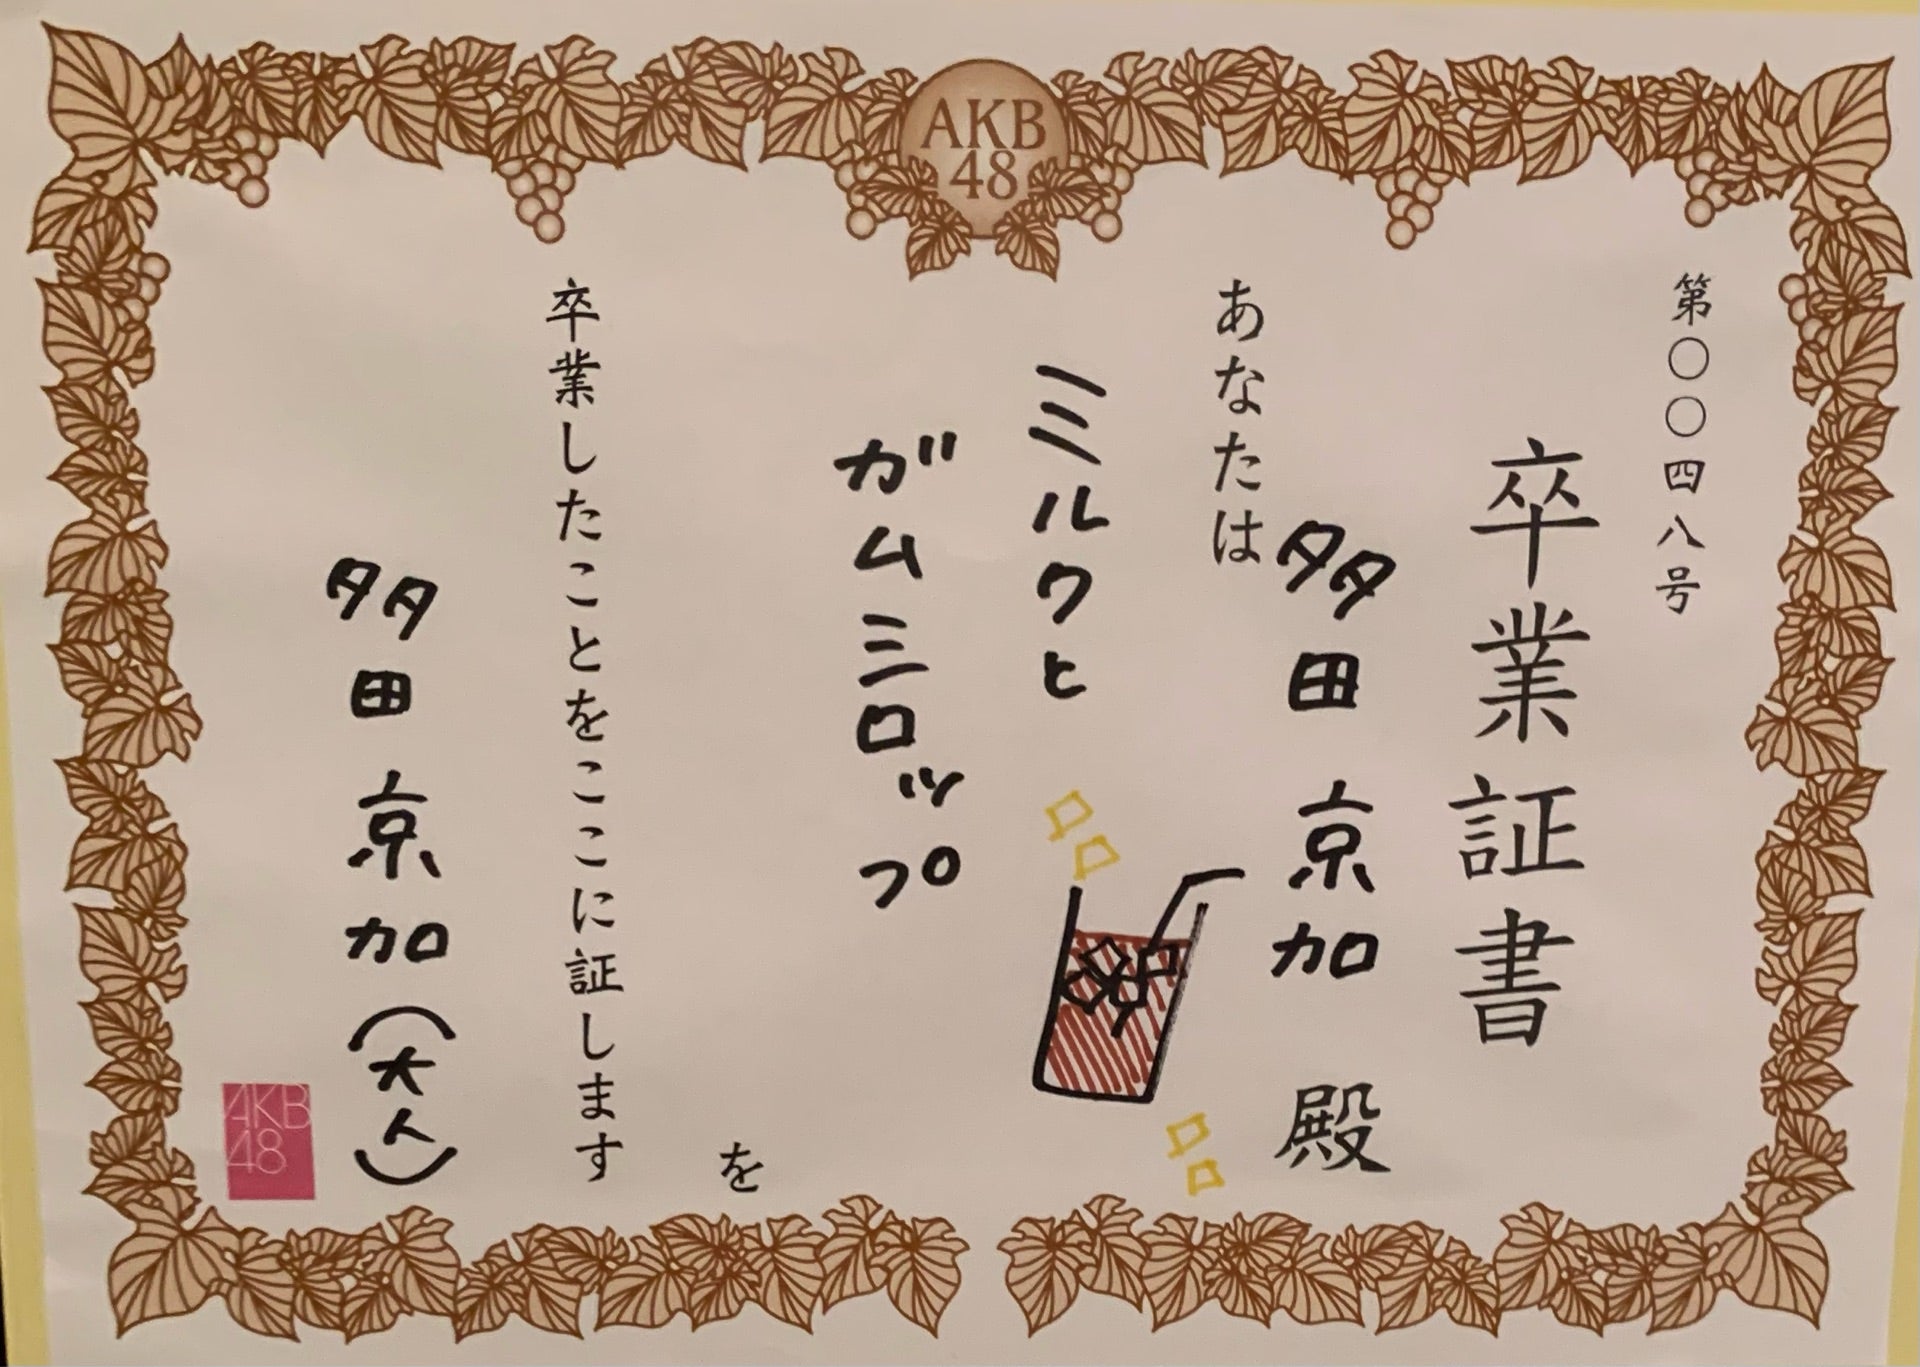 AKB
48
第〇〇四八号
卒業証書
多田京加殿
あなたは
ミルクと
ガムシロップ
を
卒業したことをここに証します
多田京加(大人)
AKB
48